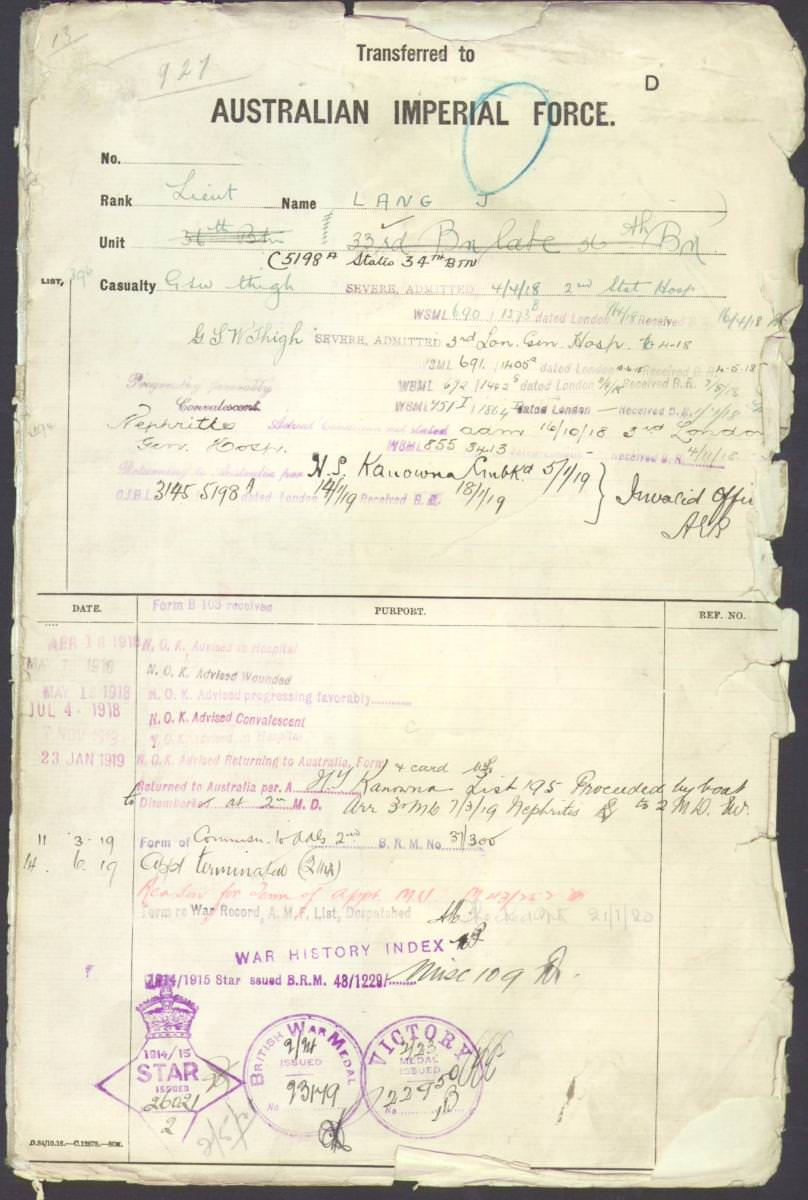 13
927
Transferred to
D
AUSTRALIAN IMPERIAL FORCE.
No.
Rank Lieut Name LANG J
Unit 36th Btn 33rd Bn late 36th Bn
C5198A States 34TH BTN
LIST, 396
Casualty GSW thigh SEVERE, ADMITTED 4/4/18 2nd Stat Hosp
WSML 690 / 1273B dated London Received 16/4/18
G.S.W Thigh SEVERE, ADMITTED 3rd Lon. Gen. Hosp. 6-4-18
WSML 691 1405 dated London Received B.R. 4-5-18
Progressing favorably WSML 672 / 1442 dated London Received B.R.
Convalescent WSML 751 I 1864 dated London — Received B.R.
Nephritis adm 16/10/18 3rd London
Gen. Hosp. WSML 855 3413 Received B.R. 4/11/18
Returning to Australia per H.S. Kanowna Embkd 5/1/19
C.I.B.L. 3145 5198A dated London 14/1/19 Received B.R. 18/1/19 Invalid
DATE. PURPORT. REF. NO.
Form B 103 received
APR 18 1918 N. O. K. Advised in Hospital
MAY 7 1918 N. O. K. Advised Wounded
MAY 13 1918 N. O. K. Advised progressing favorably
JUL 4 - 1918 N. O. K. Advised Convalescent
7 NOV 1918 N. O. K. Advised in Hospital
23 JAN 1919 N. O. K. Advised Returning to Australia, Form & card
Returned to Australia per. Kanowna List 195 Proceeded by boat
to Disembark at 2nd M. D. Arr 3rd MD 7/3/19 Nephritis to 2 M.D.
11 3-19 Form of Commsn. to 2nd B. R. M. No. 37/300
14. 6 19 App't terminated (2nd MD)
Reason for Term of Appt. M.U.
Form re War Record, A. M. F. List, Despatched 21/1/20
WAR HISTORY INDEX
1914/1915 Star issued B.R.M. 48/1229/ Misc 109
1914/15
STAR
ISSUED
26021
2
BRITISH WAR MEDAL
ISSUED
No 23179
VICTORY
2/23
MEDAL
ISSUED
No 22950
D.84/10.16.—C.12876.—50M.